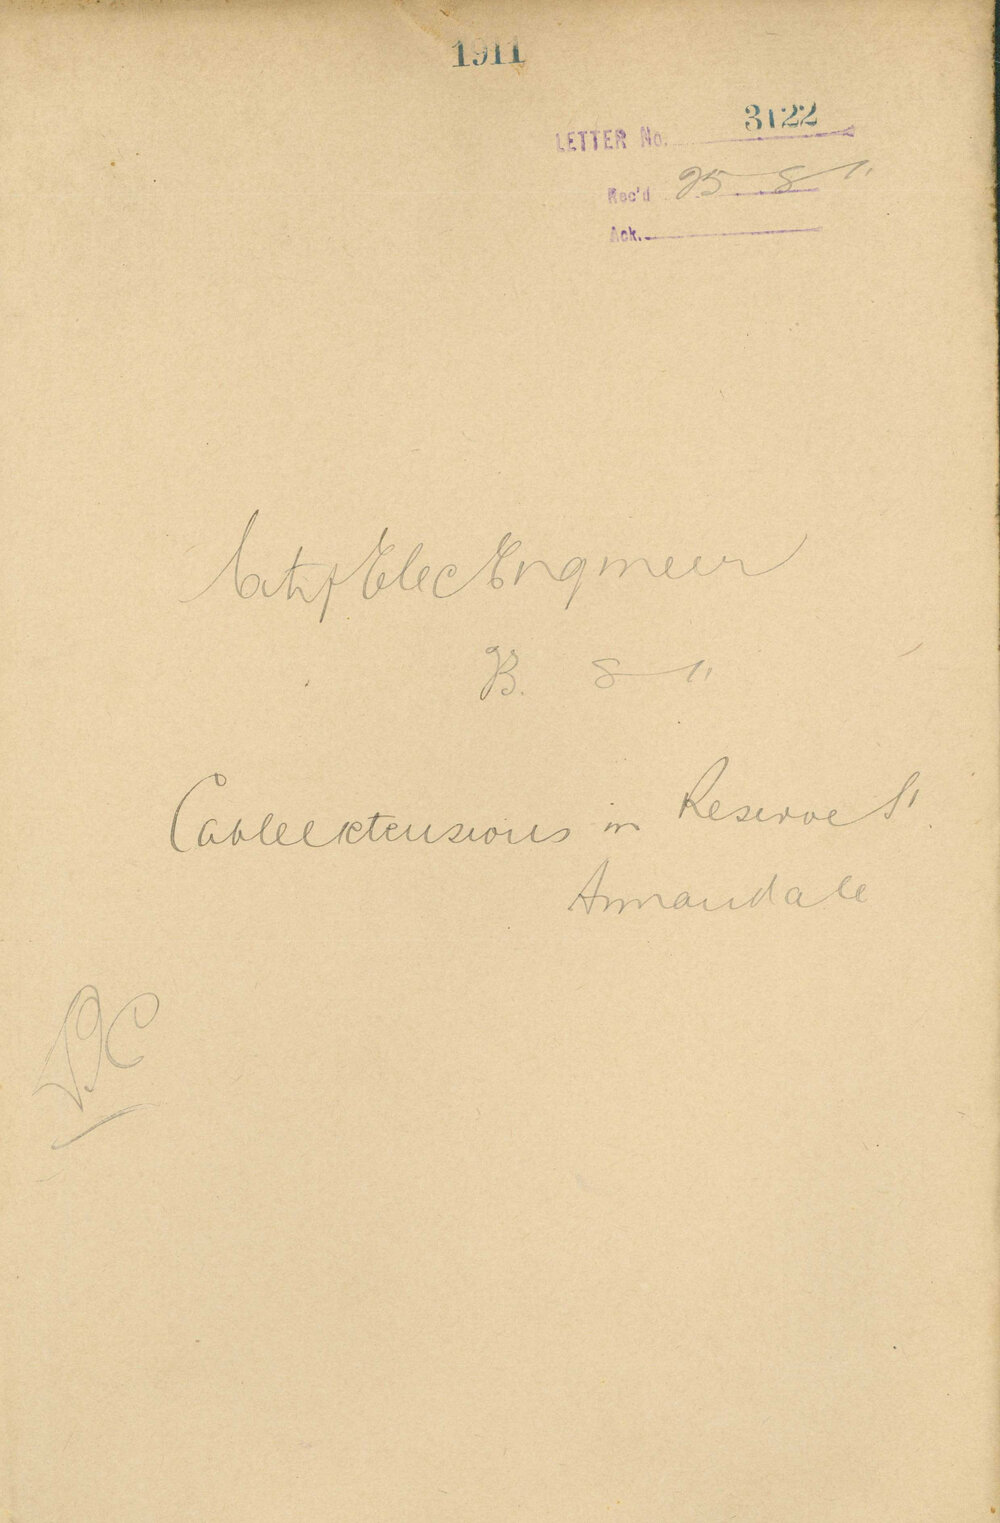 1911
LETTER No. 3122
Rec'd 25 - 8 - 11
Ack.
City Elec Engineer
23. 8 - 11
Cable extensions in Reserve St
Annandale